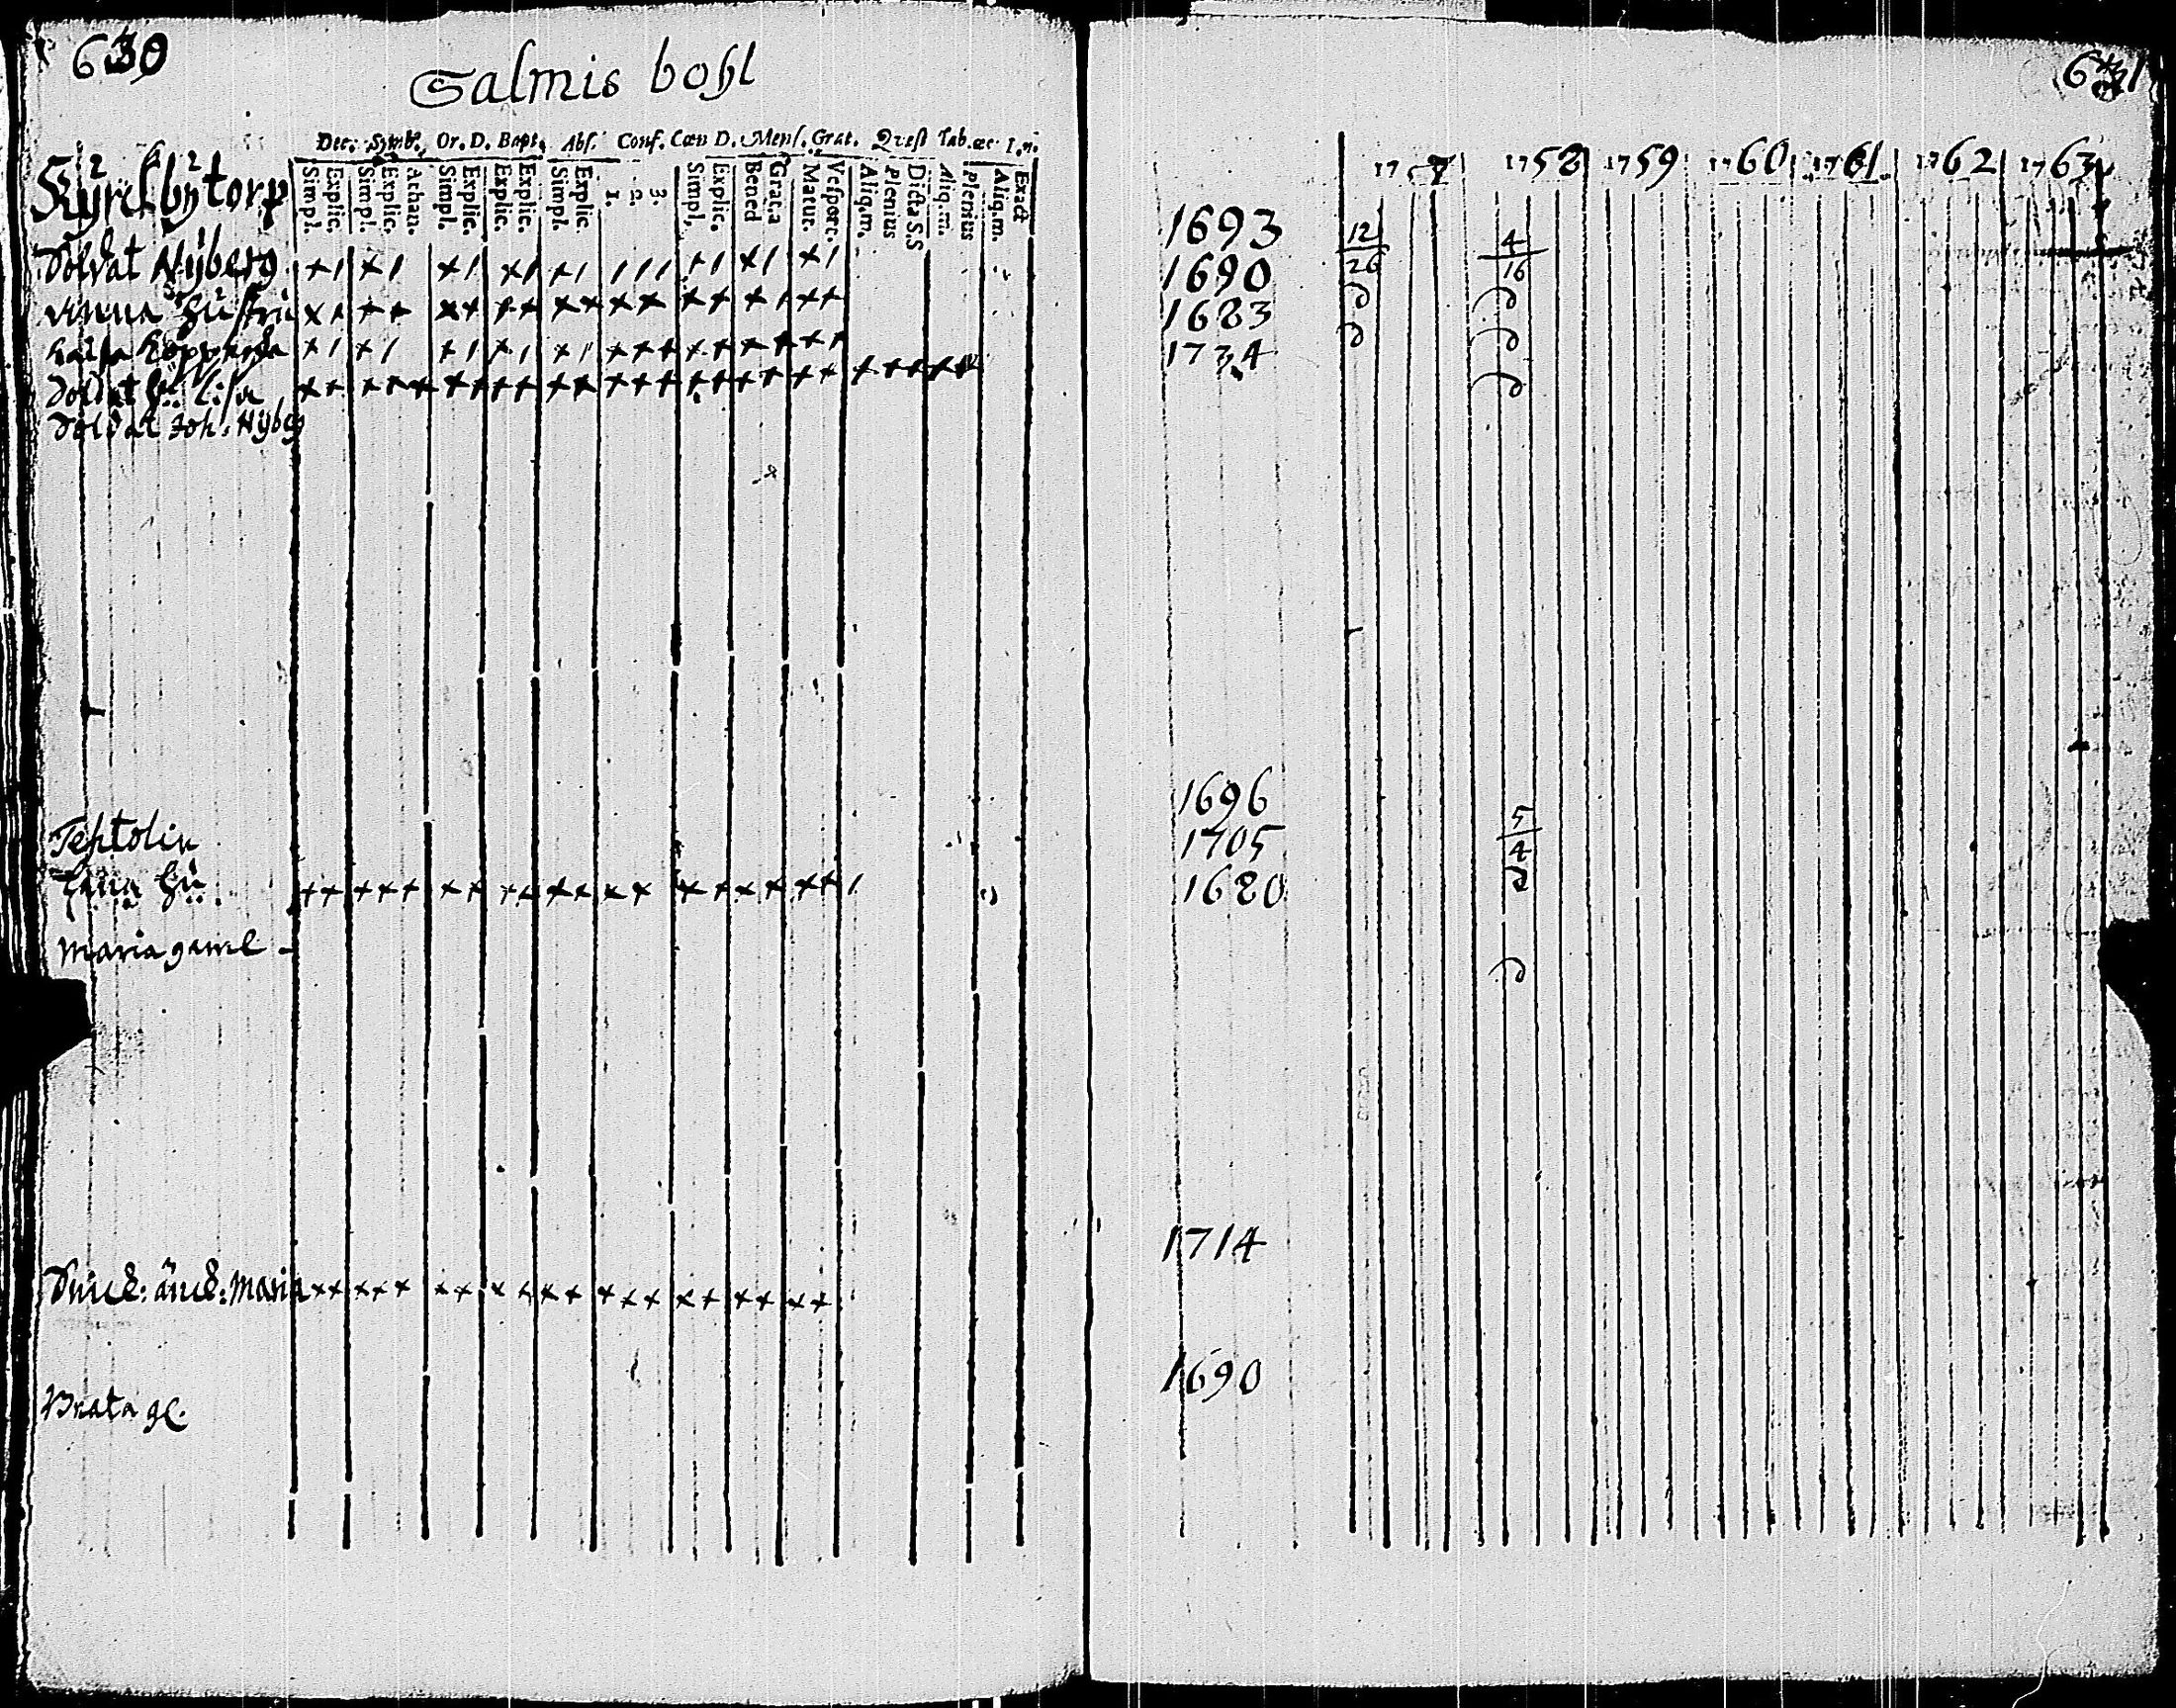 630
Salmis bohl
Dec. Symb. Or. D. Bapt. Abs. Conf. Cœn D. Mens. Grat. Qvest Tab. œc
Simpl. Explic. Simpl. Explic. Athan. Simpl. Explic. Explic. Explic. Simpl. Explic. 1. 2. 3. Simpl. Explic. Bened Grat.a Matut. Vespert. Aliq.m. Plenius Dicta S.S Aliq.m. Plenius Aliq.m. Exact
Kyrckbytorp
Soldat Nyberg
Anna Hustru
Soldat Hu: Lisa
Soldat Joh: Nyberg
Hu
Maria gaml
änck: Maria
Brata gl.
631
17 7 1758 1759 1760 1761 1762 1763
1693 12 4
1690 26 16
1683
1734
1696
1705 5
4
1680
1714
1690